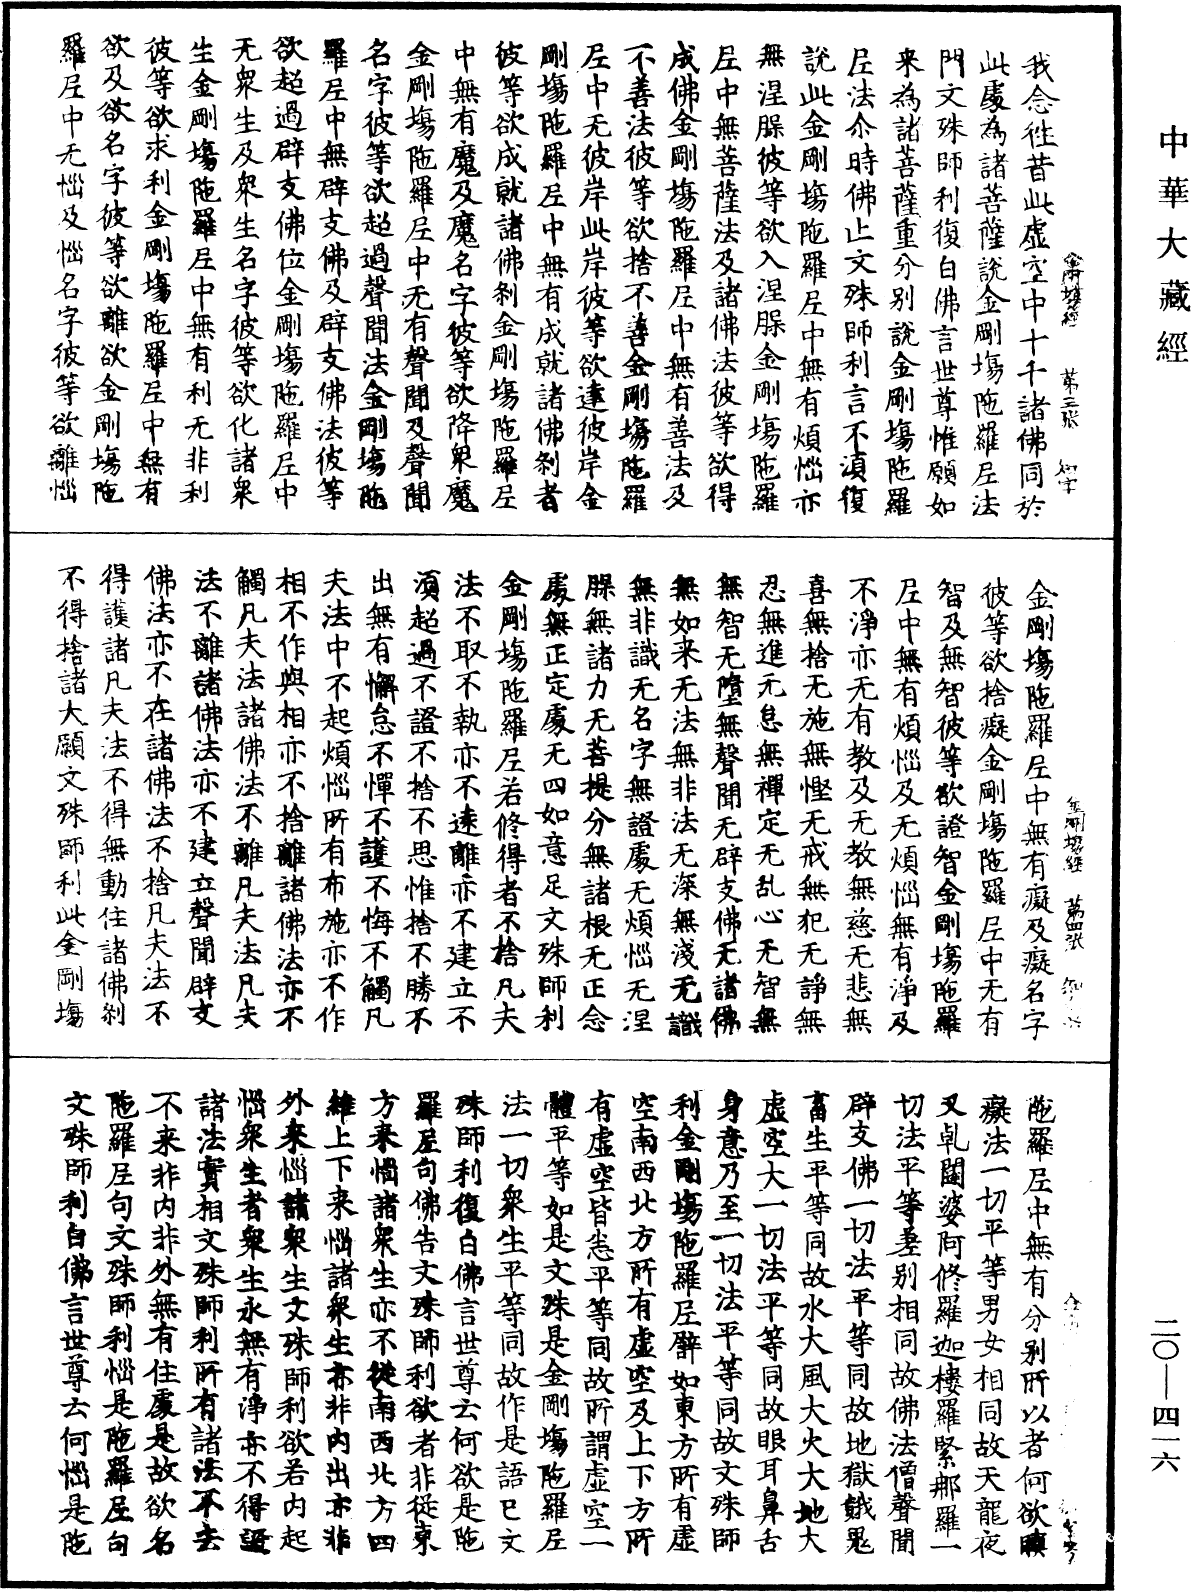 中華大藏經
二〇—四一六
金剛塲經 第三張 知字
我念徃昔此虛空中十千諸佛同於
此處為諸菩薩說金剛塲陁羅𡰱法
門文殊師利復白佛言世尊惟願如
来為諸菩薩重分別說金剛塲陁羅
𡰱法尒時佛止文殊師利言不湏復
說此金剛塲陁羅𡰱中無有煩惱亦
無涅䏶彼等欲入涅䏶金剛塲陁羅
𡰱中無菩薩法及諸佛法彼等欲得
成佛金剛塲陁羅𡰱中無有善法及
不善法彼等欲捨不善金剛塲陁羅
𡰱中无彼岸此岸彼等欲達彼岸金
剛塲陁羅𡰱中無有成就諸佛剎者
彼等欲成就諸佛剎金剛塲陁羅𡰱
中無有魔及魔名字彼等欲降衆魔
金剛塲陁羅𡰱中无有聲聞及聲聞
名字彼等欲超過聲聞法金剛塲陁
羅𡰱中無辟支佛及辟支佛法彼等
欲超過辟支佛位金剛塲陁羅𡰱中
无衆生及衆生名字彼等欲化諸衆
生金剛塲陁羅𡰱中無有利无非利
彼等欲求利金剛塲陁羅𡰱中無有
欲及欲名字彼等欲離欲金剛塲陁
羅𡰱中无惱及惱名字彼等欲離惱
金剛塲經 第四張
金剛塲陁羅𡰱中無有癡及癡名字
彼等欲捨癡金剛塲陁羅𡰱中无有
智及無智彼等欲證智金剛塲陁羅
𡰱中無有煩惱及无煩惱無有淨及
不淨亦无有教及无教無慈无悲無
喜無捨无施無慳无戒無犯无諍無
忍無進无怠無禪定无乱心无智無
無智无墮無聲聞无辟支佛无諸佛
無如来无法無非法无深無淺无識
無非識无名字無證處无煩惱无涅
䏶無諸力无菩提分無諸根无正念
處無正定處无四如意足文殊師利
金剛塲陁羅𡰱若修得者不捨凡夫
法不取不執亦不遠離亦不建立不
湏超過不證不捨不思惟捨不勝不
出無有懈怠不憚不護不悔不觸凡
夫法中不起煩惱所有布施亦不作
相不作與相亦不捨離諸佛法亦不
觸凡夫法諸佛法不離凡夫法凡夫
法不離諸佛法亦不建立聲聞辟支
佛法亦不在諸佛法不捨凡夫法不
得護諸凡夫法不得無動住諸佛剎
不得捨諸大願文殊師利此金剛塲
陁羅𡰱中無有分別所以者何欲瞋
癡法一切平等男女相同故天龍夜
叉乹闥婆阿修羅迦樓羅緊那羅一
切法平等差別相同故佛法僧聲聞
辟支佛一切法平等同故地獄餓鬼
畜生平等同故水大風大火大地大
虛空大一切法平等同故眼耳鼻舌
身意乃至一切法平等同故文殊師
利金剛塲陁羅𡰱譬如東方所有虛
空南西北方所有虛空及上下方所
有虛空皆悉平等同故所謂虛空一
體平等如是文殊是金剛塲陁羅𡰱
法一切衆生平等同故作是語已文
殊師利復白佛言世尊云何欲是陁
羅𡰱句佛告文殊師利欲者非従東
方来惱諸衆生亦不従南西北方四
維上下来惱諸衆生亦非内出亦非
外来惱諸衆生文殊師利欲若内起
惱衆生者衆生永無有淨亦不得證
諸法實相文殊師利所有諸法不去
不来非内非外無有住處是故欲名
陁羅𡰱句文殊師利惱是陁羅𡰱句
文殊師利白佛言世尊云何惱是陁